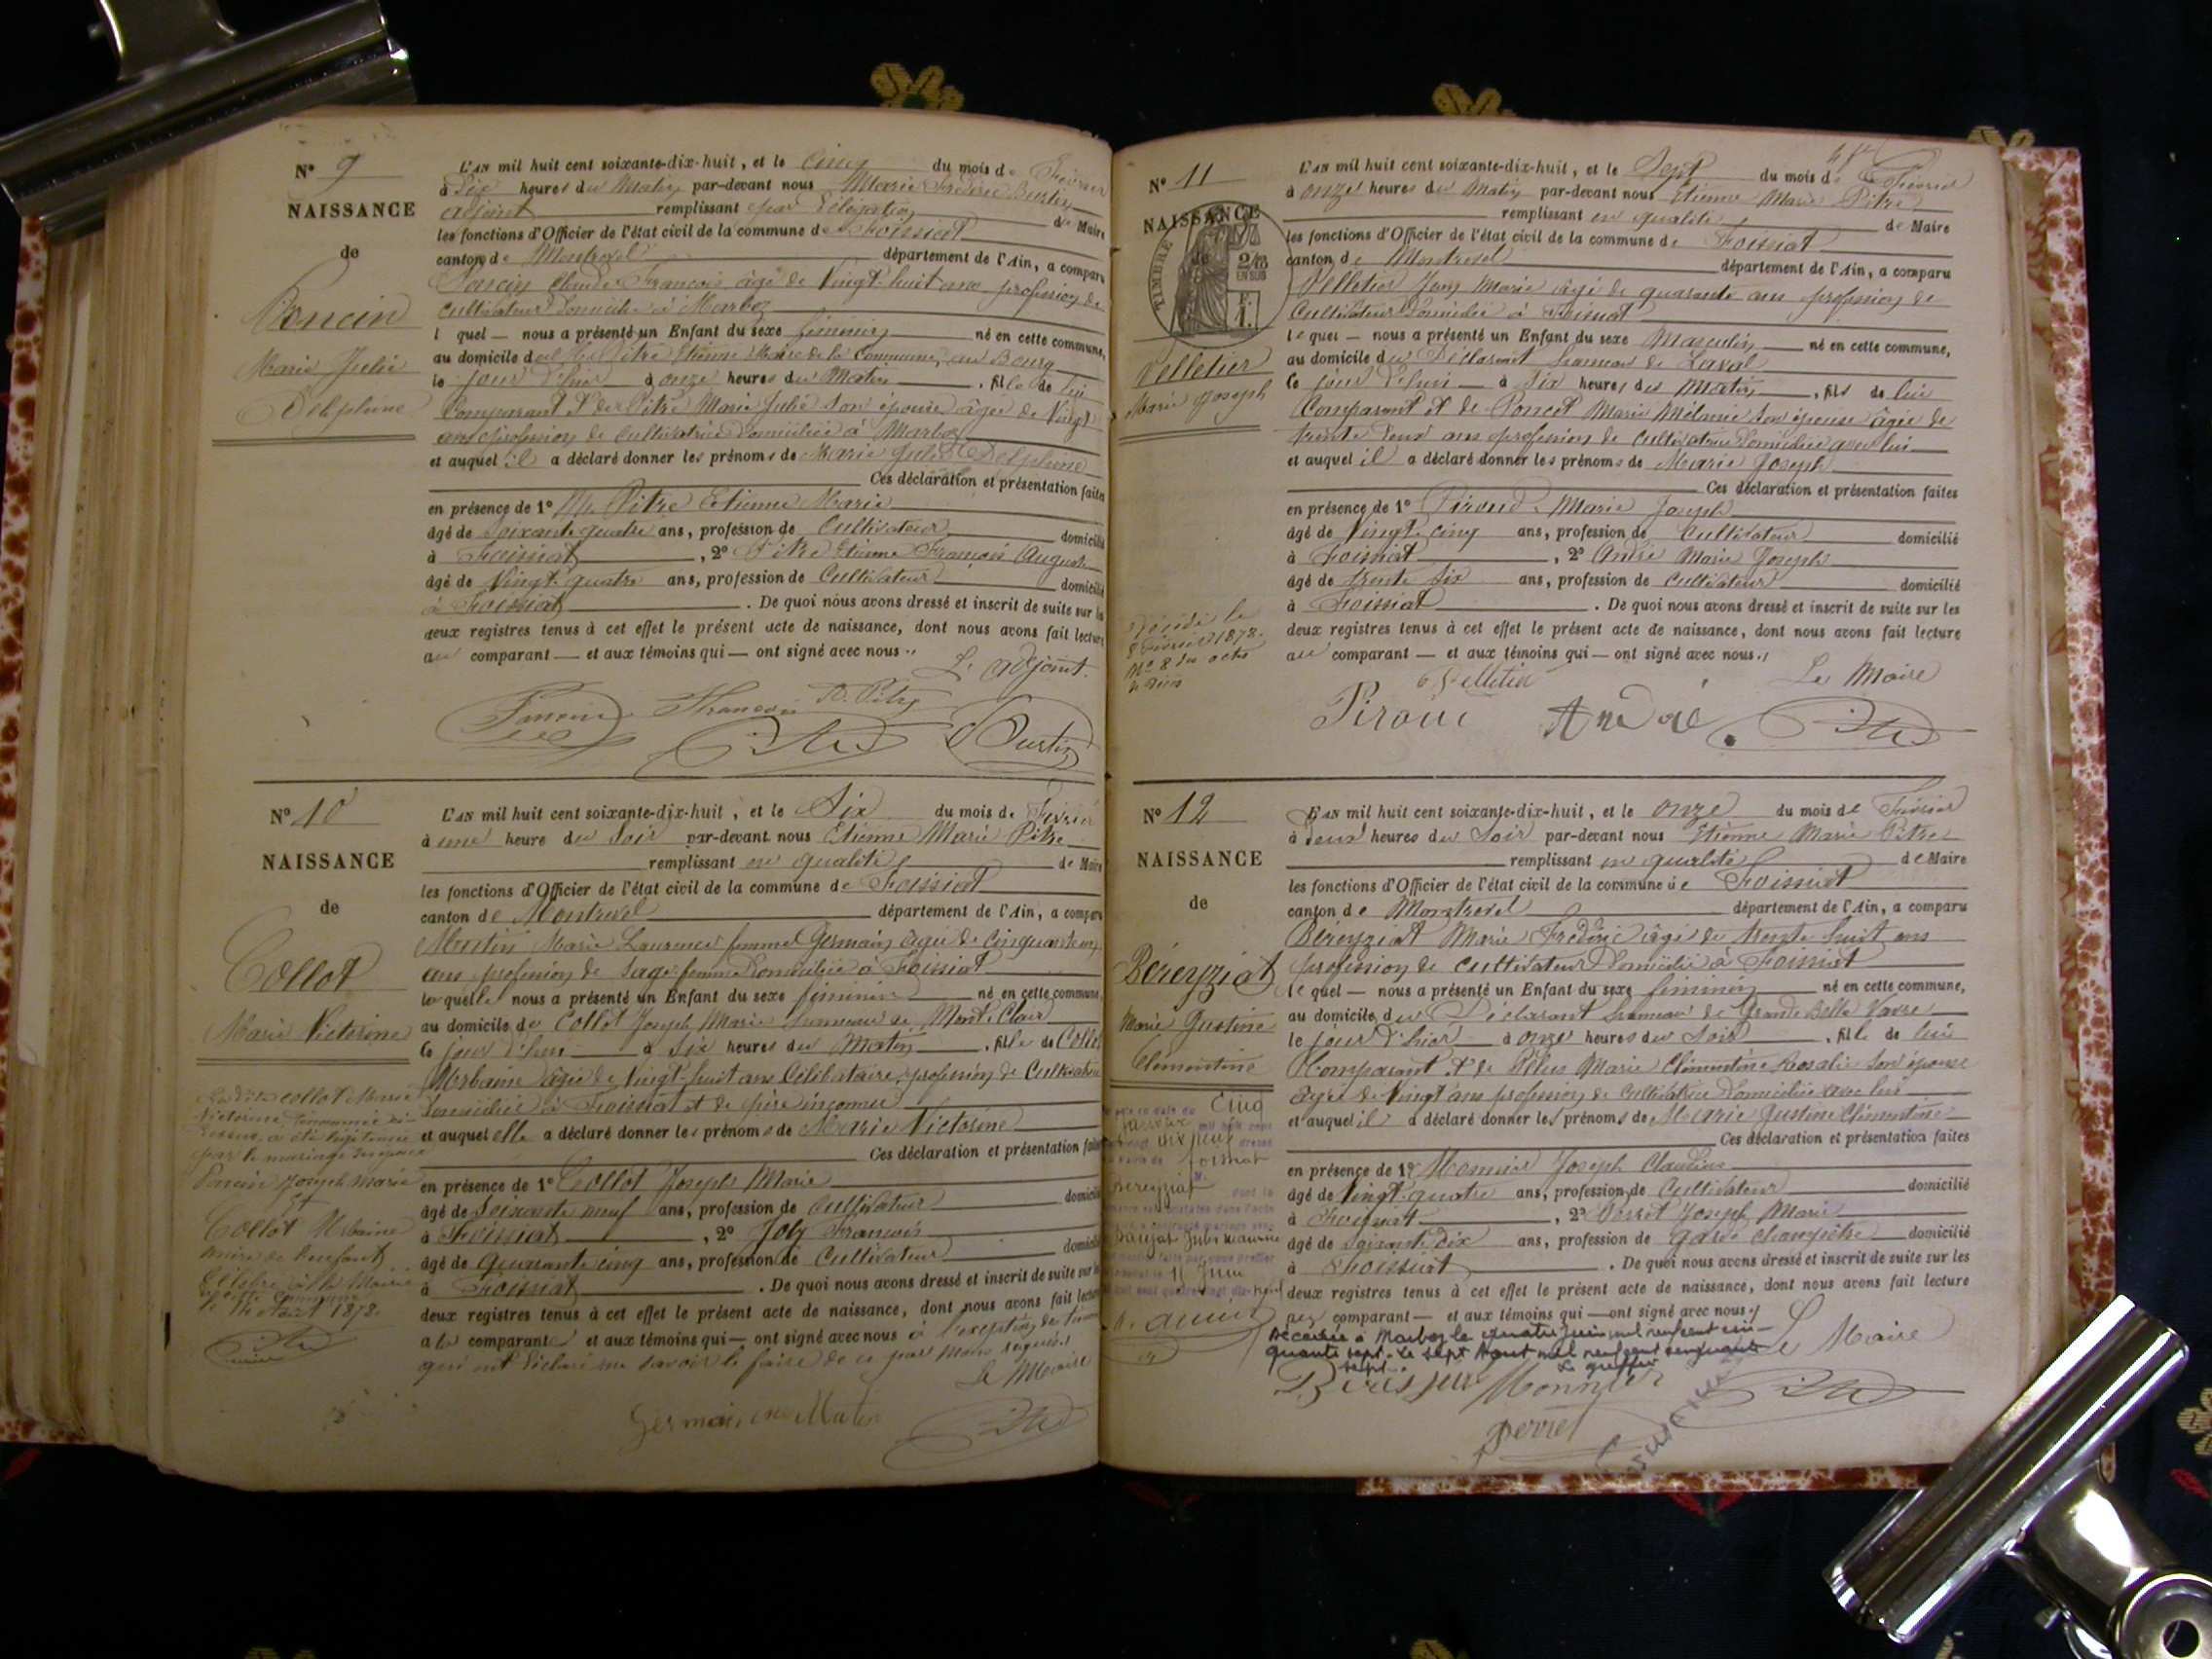 N° 9
NAISSANCE
de
Poncin
Marie Julie
Delphine
L'AN mil huit cent soixante-dix-huit, et le Cinq du mois de Février
à Six heures du Matin par-devant nous Marie Frédéric Burtin
adjoint remplissant par délégation de Maire
les fonctions d'Officier de l'état civil de la commune de Foissiat
canton de Montrevel département de l'Ain, a comparu
Poncin Claude François âgé de Vingt-huit ans profession de
Cultivateur domicilié à Marboz
l quel — nous a présenté un Enfant du sexe féminin né en cette commune,
au domicile de Pitre Etienne Maire de la Commune, au Bourg
le jour d'hier à onze heures du Matin, fille de lui
Comparant et de Pitre Marie Julie son épouse âgée de Vingt
ans profession de Cultivatrice domiciliée à Marboz
et auquel il a déclaré donner les prénoms de Marie Julie Delphine
Ces déclaration et présentation faites
en présence de 1° Pitre Etienne Marie
âgé de Soixante quatre ans, profession de Cultivateur domicilié
à Foissiat, 2° Pitre Etienne François Auguste
âgé de Vingt quatre ans, profession de Cultivateur domicilié
à Foissiat. De quoi nous avons dressé et inscrit de suite sur les
deux registres tenus à cet effet le présent acte de naissance, dont nous avons fait lecture
au comparant — et aux témoins qui — ont signé avec nous.
L'adjoint.
Poncin François Pitre
Burtin
N° 10
NAISSANCE
de
Collot
Marie Victorine
La dite Collot Marie
Victorine, dénommée ci-
dessus, a été légitimée
par le mariage
Poncin Joseph Marie
et
Collot Urbaine
mère de l'enfant
Célébré à la Mairie
de cette commune
le 14 Août 1878.
L'AN mil huit cent soixante-dix-huit, et le Six du mois de Février
à une heure du Soir par-devant nous Etienne Marie Pitre
remplissant en qualité de Maire
les fonctions d'Officier de l'état civil de la commune de Foissiat
canton de Montrevel département de l'Ain, a comparu
Martin Marie Laurence femme Germain âgée de Cinquante
ans profession de Sage-femme domiciliée à Foissiat
le quelle nous a présenté un Enfant du sexe féminin né en cette commune,
au domicile de Collot Joseph Marie hameau de Mont-Clair
le jour d'hui à Six heures du Matin, fille de Collot
Urbaine âgée de Vingt-huit ans Célibataire, profession de Cultivatrice
domiciliée à Foissiat et de père inconnu
et auquel elle a déclaré donner les prénoms de Marie Victorine
Ces déclaration et présentation faites
en présence de 1° Collot Joseph Marie
âgé de Soixante neuf ans, profession de Cultivateur domicilié
à Foissiat, 2° Joly François
âgé de Quarante cinq ans, profession de Cultivateur domicilié
à Foissiat. De quoi nous avons dressé et inscrit de suite sur les
deux registres tenus à cet effet le présent acte de naissance, dont nous avons fait lecture
a la comparante et aux témoins qui — ont signé avec nous à l'exception de
qui ont déclaré ne savoir le faire de ce par nous requis.
Le Maire
N° 11
NAISSANCE
de
TIMBRE
EN SUS
Pelletier
Marie Joseph
Décédé le
8 Février 1878.
N° 8 des actes
de décès
L'AN mil huit cent soixante-dix-huit, et le Sept du mois de Février
à onze heures du Matin par-devant nous Etienne Marie Pitre
remplissant en qualité de Maire
les fonctions d'Officier de l'état civil de la commune de Foissiat
canton de Montrevel département de l'Ain, a comparu
Pelletier Jean Marie âgé de quarante ans profession de
Cultivateur domicilié à Foissiat
le quel — nous a présenté un Enfant du sexe Masculin né en cette commune,
au domicile du Déclarant hameau de Laval
le jour d'hui à Six heures du Matin, fils de lui
Comparant et de Poncet Marie Mélanie son épouse âgée de
trente deux ans profession de Cultivatrice domiciliée avec lui
et auquel il a déclaré donner les prénoms de Marie Joseph
Ces déclaration et présentation faites
en présence de 1° Piroud Marie Joseph
âgé de Vingt-cinq ans, profession de Cultivateur domicilié
à Foissiat, 2° André Marie Joseph
âgé de trente Six ans, profession de Cultivateur domicilié
à Foissiat. De quoi nous avons dressé et inscrit de suite sur les
deux registres tenus à cet effet le présent acte de naissance, dont nous avons fait lecture
au comparant — et aux témoins qui — ont signé avec nous.
Pelletier Le Maire
André
N° 12
NAISSANCE
de
Béreyziat
Marie Justine
Clémentine
L'AN mil huit cent soixante-dix-huit, et le onze du mois de Février
à deux heures du Soir par-devant nous Etienne Marie Pitre
remplissant en qualité de Maire
les fonctions d'Officier de l'état civil de la commune de Foissiat
canton de Montrevel département de l'Ain, a comparu
Béreyziat Marie Frédéric âgé de trente huit ans
profession de Cultivateur domicilié à Foissiat
le quel — nous a présenté un Enfant du sexe féminin né en cette commune,
au domicile du Déclarant hameau de Grande Belle Vavre
le jour d'hier à onze heures du Soir, fille de lui
Comparant et de Pélus Marie Clémentine Rosalie son épouse
âgée de Vingt ans profession de Cultivatrice domiciliée avec lui
et auquel il a déclaré donner les prénoms de Marie Justine Clémentine
Ces déclaration et présentation faites
en présence de 1° Monnier Joseph Claudius
âgé de Vingt-quatre ans, profession de Cultivateur domicilié
à Foissiat, 2° Perret Joseph Marie
âgé de Soixante dix ans, profession de garde champêtre domicilié
à Foissiat. De quoi nous avons dressé et inscrit de suite sur les
deux registres tenus à cet effet le présent acte de naissance, dont nous avons fait lecture
au comparant — et aux témoins qui — ont signé avec nous
Décédée à Marboz le quatre juin mil neuf cent cin-
quante sept. Le sept Aout mil neuf cent cinquante
sept. Le greffier
Le Maire
Monnier
Perret